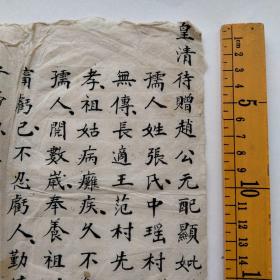 皇清待贈趙公元配顯妣
孺人姓張氏中瑶村
無傳長適王范村先
孝祖姑病癱疾久不
孺人閱數歲奉養祖
甯虧己不忍虧人勤
1cm 2 3 4 5 6 7 8 9 10